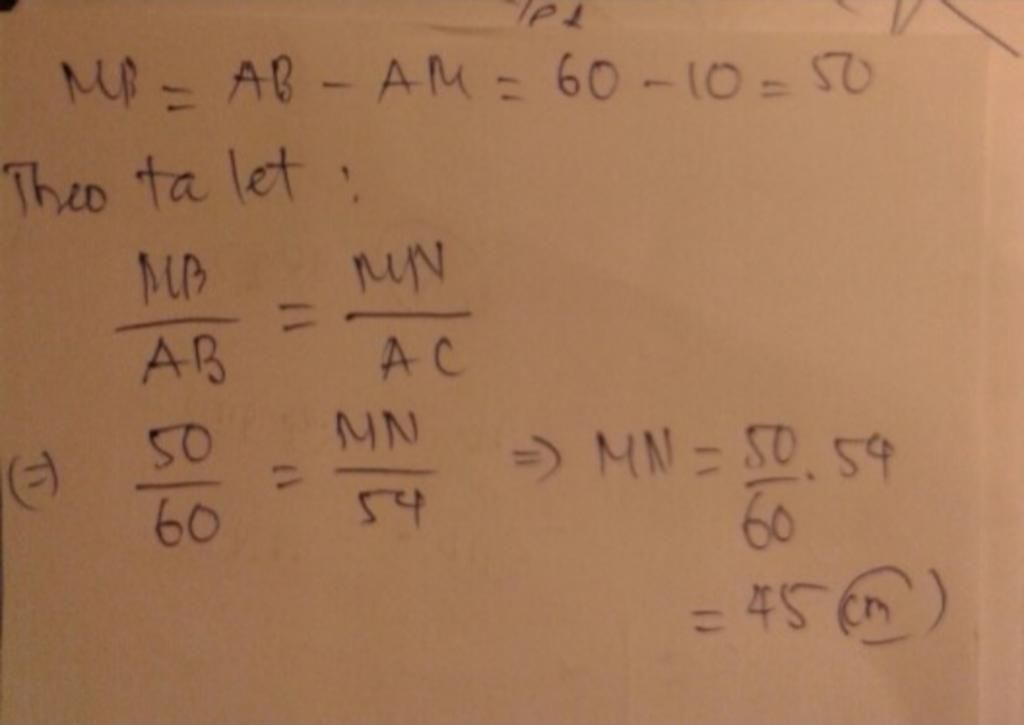 MB = AB - AM = 60 - 10 = 50
Theo ta let :
MB/AB = MN/AC
(=) 50/60 = MN/54 => MN = 50/60 . 54
= 45 (cm)